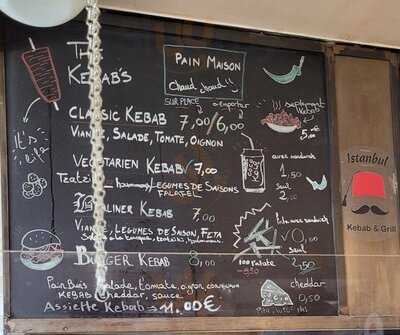 PAIN MAISON
Chaud chaud
THE KEBAB'S
SUR PLACE à emporter
CLASSIC KEBAB 7,00/6,00
VIANDE, SALADE, TOMATE, OIGNON
supplément Kebab
5,00
It's
VEGETARIEN KEBAB 7,00
Tzatziki, hummus, LEGUMES DE SAISONS
FALAFEL
avec sandwich
1,50
seul
2,00
BERLINER KEBAB 7,00
VIANDE, LEGUMES DE SAISON, FETA
Frite avec sandwich
seul
2,50
BURGER KEBAB 8,00
Pain Buns, salade, tomate, oignon
KEBAB, cheddar, sauce
cheddar
0,50
Assiette Kebab → 11.00€
Istanbul
Kebab & Grill